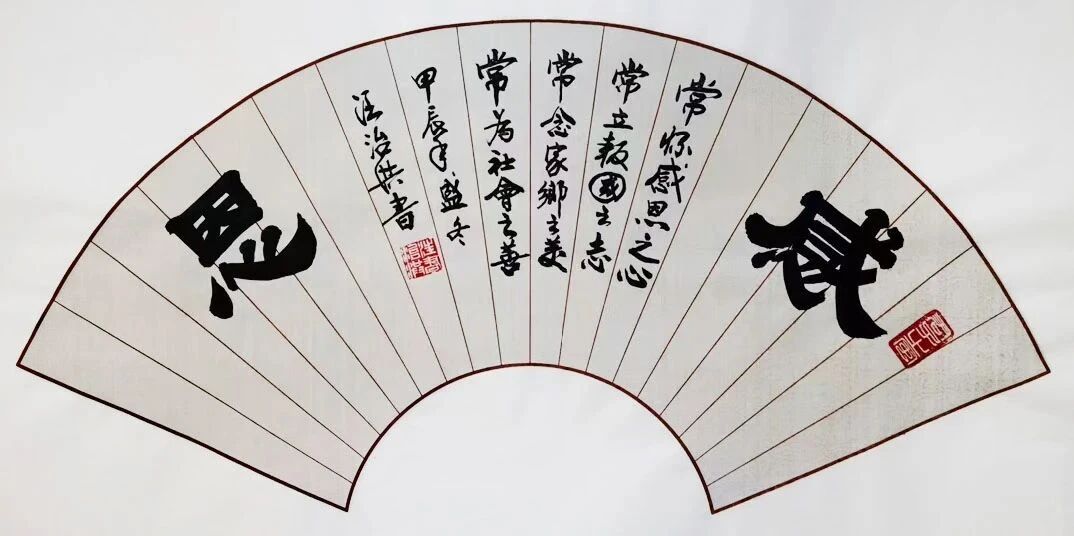 感恩
常懷感恩之心
常立報國之志
常念家鄉之美
常为社會之善
甲辰年盛冬
汪治洪書